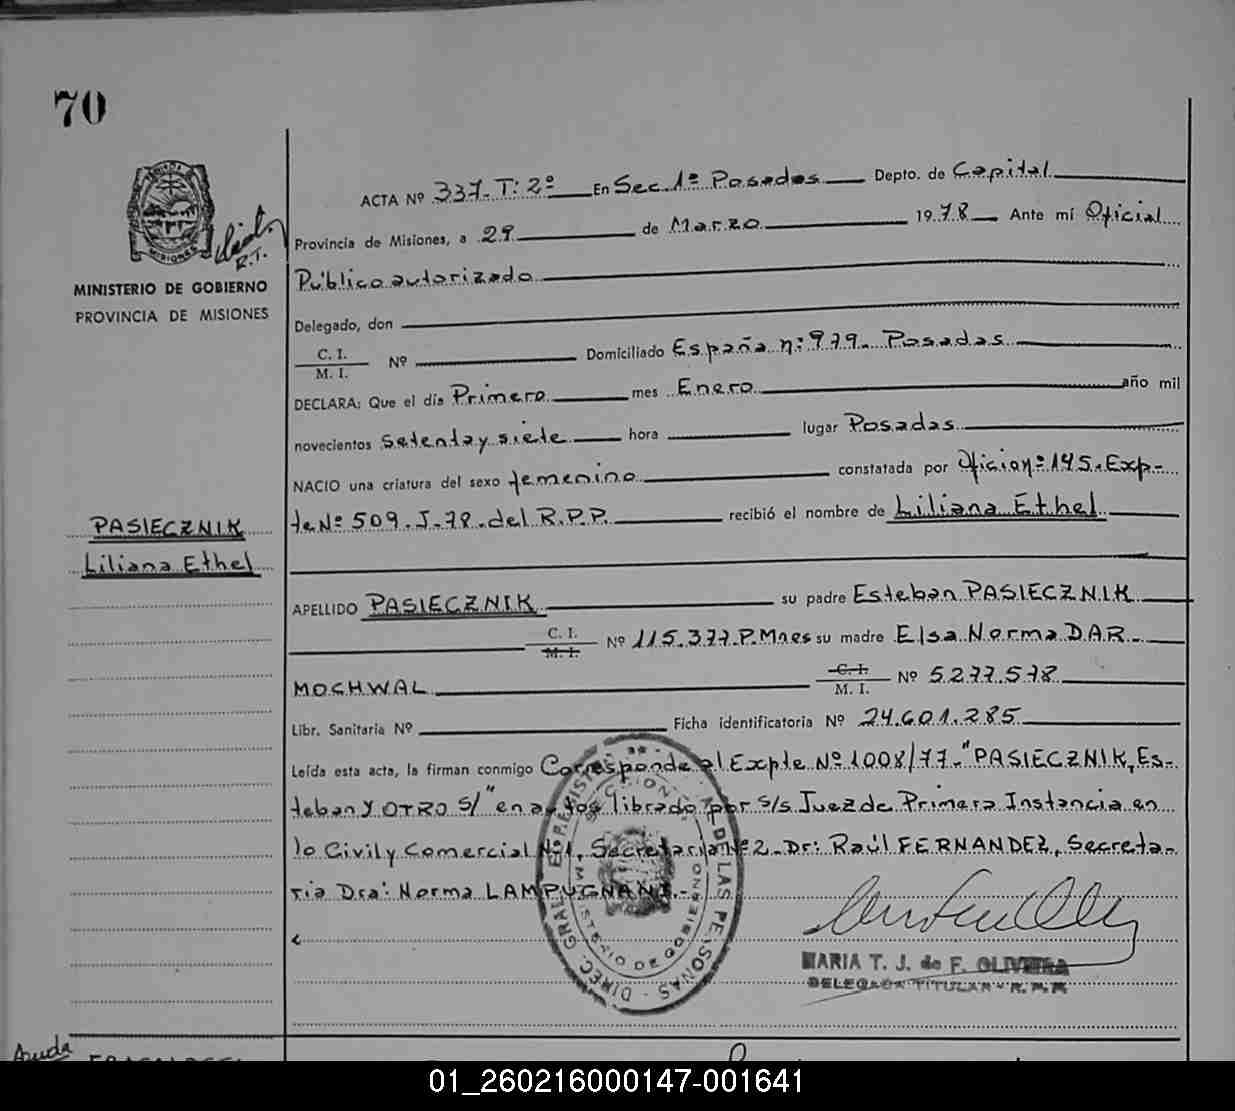 70
MISIONES
R.T.
MINISTERIO DE GOBIERNO
PROVINCIA DE MISIONES
PASIECZNIK
Liliana Ethel
ACTA Nº 337. T: 2º En Sec. 1ª Posadas Depto. de Capital
Provincia de Misiones, a 29 de Marzo 1978 Ante mí Oficial
Público autorizado
Delegado, don
C. I. / M. I. Nº Domiciliado España n: 979. Posadas
DECLARA: Que el día Primero mes Enero año mil
novecientos Setenta y siete hora lugar Posadas
NACIO una criatura del sexo femenino constatada por Oficio nº 145. Exp-
te Nº 509. J-78. del R.P.P. recibió el nombre de Liliana Ethel
APELLIDO PASIECZNIK su padre Esteban PASIECZNIK
C. I. / M. I. Nº 115.377.P.Mnes su madre Elsa Norma DAR-
MOCHWAL C. I. / M. I. Nº 5.277.578
Libr. Sanitaria Nº Ficha identificatoria Nº 24.601.285
Leída esta acta, la firman conmigo Corresponde al Expte Nº 1008/77-"PASIECZNIK, Es-
teban y OTRO s/" en autos librado por S/S Juez de Primera Instancia en
lo Civil y Comercial Nº1, Secretaria Nº2. Dr: Raúl FERNANDEZ, Secreta-
ria Dra: Norma LAMPUGNANI.-
DIREC. GRAL. DE LAS PERSONAS
MINISTERIO DE GOBIERNO
MARIA T. J. de F. OLIVEIRA
DELEGADA TITULAR - R. P. P.
Ayuda
01_260216000147-001641